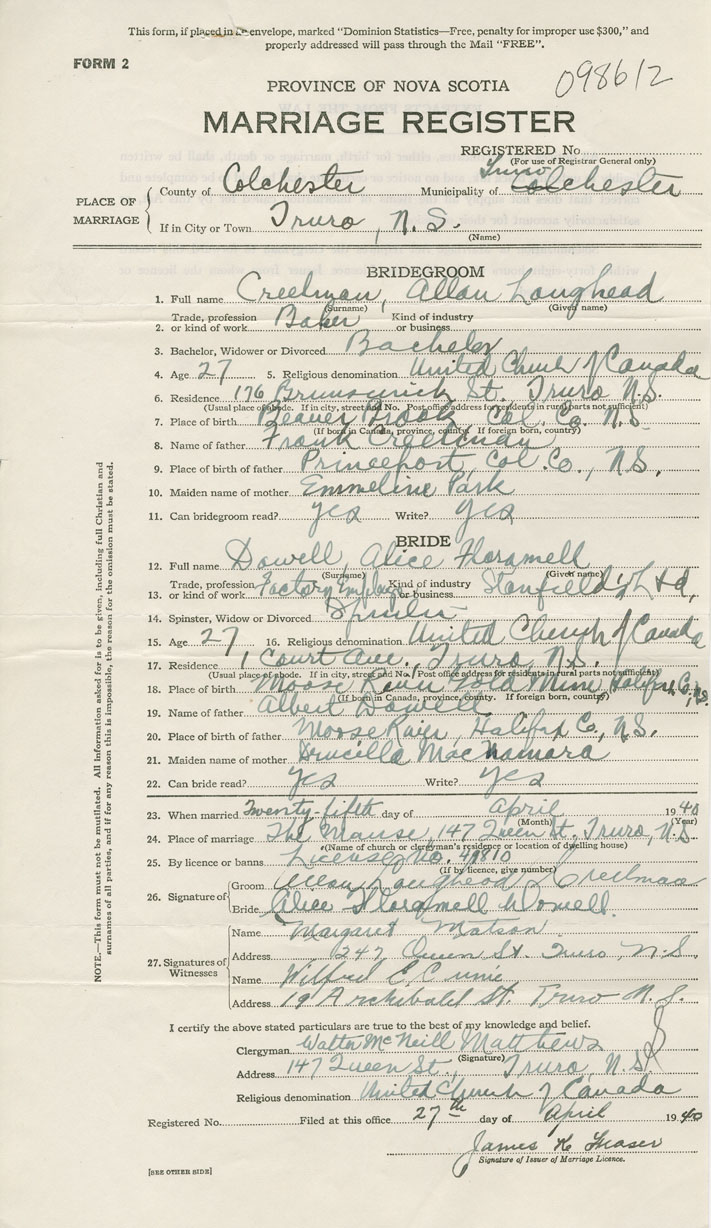 This form, if placed in an envelope, marked "Dominion Statistics—Free, penalty for improper use $300," and
properly addressed will pass through the Mail "FREE".
FORM 2
098612
PROVINCE OF NOVA SCOTIA
MARRIAGE REGISTER
REGISTERED No.
(For use of Registrar General only)
PLACE OF MARRIAGE
County of Colchester Municipality of Truro Colchester
If in City or Town Truro, N.S.
(Name)
BRIDEGROOM
1. Full name Creelman, Allan Loughead
(Surname) (Given name)
2. Trade, profession or kind of work Baker Kind of industry or business
3. Bachelor, Widower or Divorced Bachelor
4. Age 27 5. Religious denomination United Church of Canada
6. Residence 176 Brunswick St. Truro N.S.
(Usual place of abode. If in city, street and No. Post office address for residents in rural parts not sufficient)
7. Place of birth Beaver Brook, Col. Co. N.S.
(If born in Canada, province, county. If foreign born, country)
8. Name of father Frank Creelman
9. Place of birth of father Princeport, Col. Co., N.S.
10. Maiden name of mother Emmeline Park
11. Can bridegroom read? yes Write? yes
BRIDE
12. Full name Dowell, Alice Floramell
(Surname) (Given name)
13. Trade, profession or kind of work Factory Kind of industry or business Stanfield's Ltd,
14. Spinster, Widow or Divorced Spinster
15. Age 27 16. Religious denomination United Church of Canada
17. Residence 1 Court Ave., Truro N.S.
(Usual place of abode. If in city, street and No. Post office address for residents in rural parts not sufficient)
18. Place of birth Moose River Gold Mine, Halifax Co., N.S.
(If born in Canada, province, county. If foreign born, country)
19. Name of father Albert Dowell
20. Place of birth of father Moose River, Halifax Co., N.S.
21. Maiden name of mother Drucilla MacNamara
22. Can bride read? yes Write? yes
23. When married Twenty-fifth day of April 1940
(Month) (Year)
24. Place of marriage The Manse, 147 Queen St. Truro, N.S.
(Name of church or clergyman's residence or location of dwelling house)
25. By licence or banns License No. 49810
(If by licence, give number)
26. Signature of
Groom Allan Loughead Creelman
Bride Alice Floramell Dowell.
27. Signatures of Witnesses
Name Margaret Matson
Address 247 Queen St. Truro, N.S.
Name Wilfred E.
Address 19 Archibald St. Truro N.S.
I certify the above stated particulars are true to the best of my knowledge and belief.
Clergyman Walter McNeill Matthews
(Signature)
Address 147 Queen St., Truro, N.S.
Religious denomination United Church of Canada
Registered No. Filed at this office 27th day of April 1940
James K Fraser
Signature of Issuer of Marriage Licence.
[SEE OTHER SIDE]
NOTE.—This form must not be mutilated. All information asked for is to be given, including full Christian and
surnames of all parties, and if for any reason this is impossible, the reason for the omission must be stated.